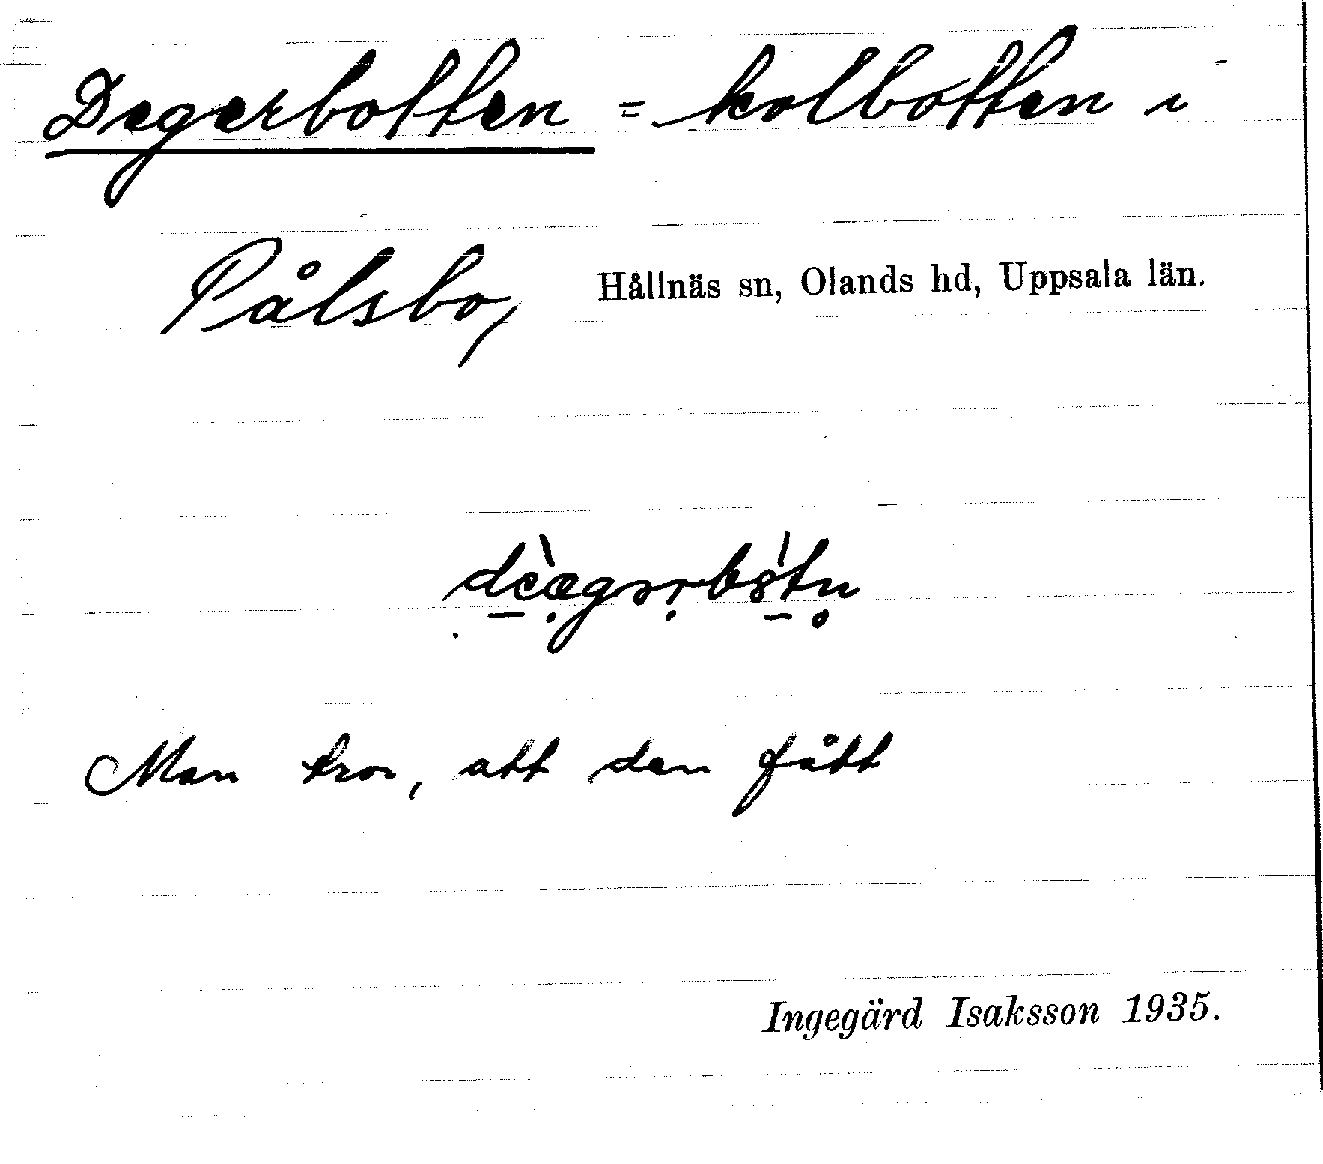 Degerbotten = kolbotten i
Pålsbo, Hållnäs sn, Olands hd, Uppsala län.
Man tror, att den fått
Ingegärd Isaksson 1935.